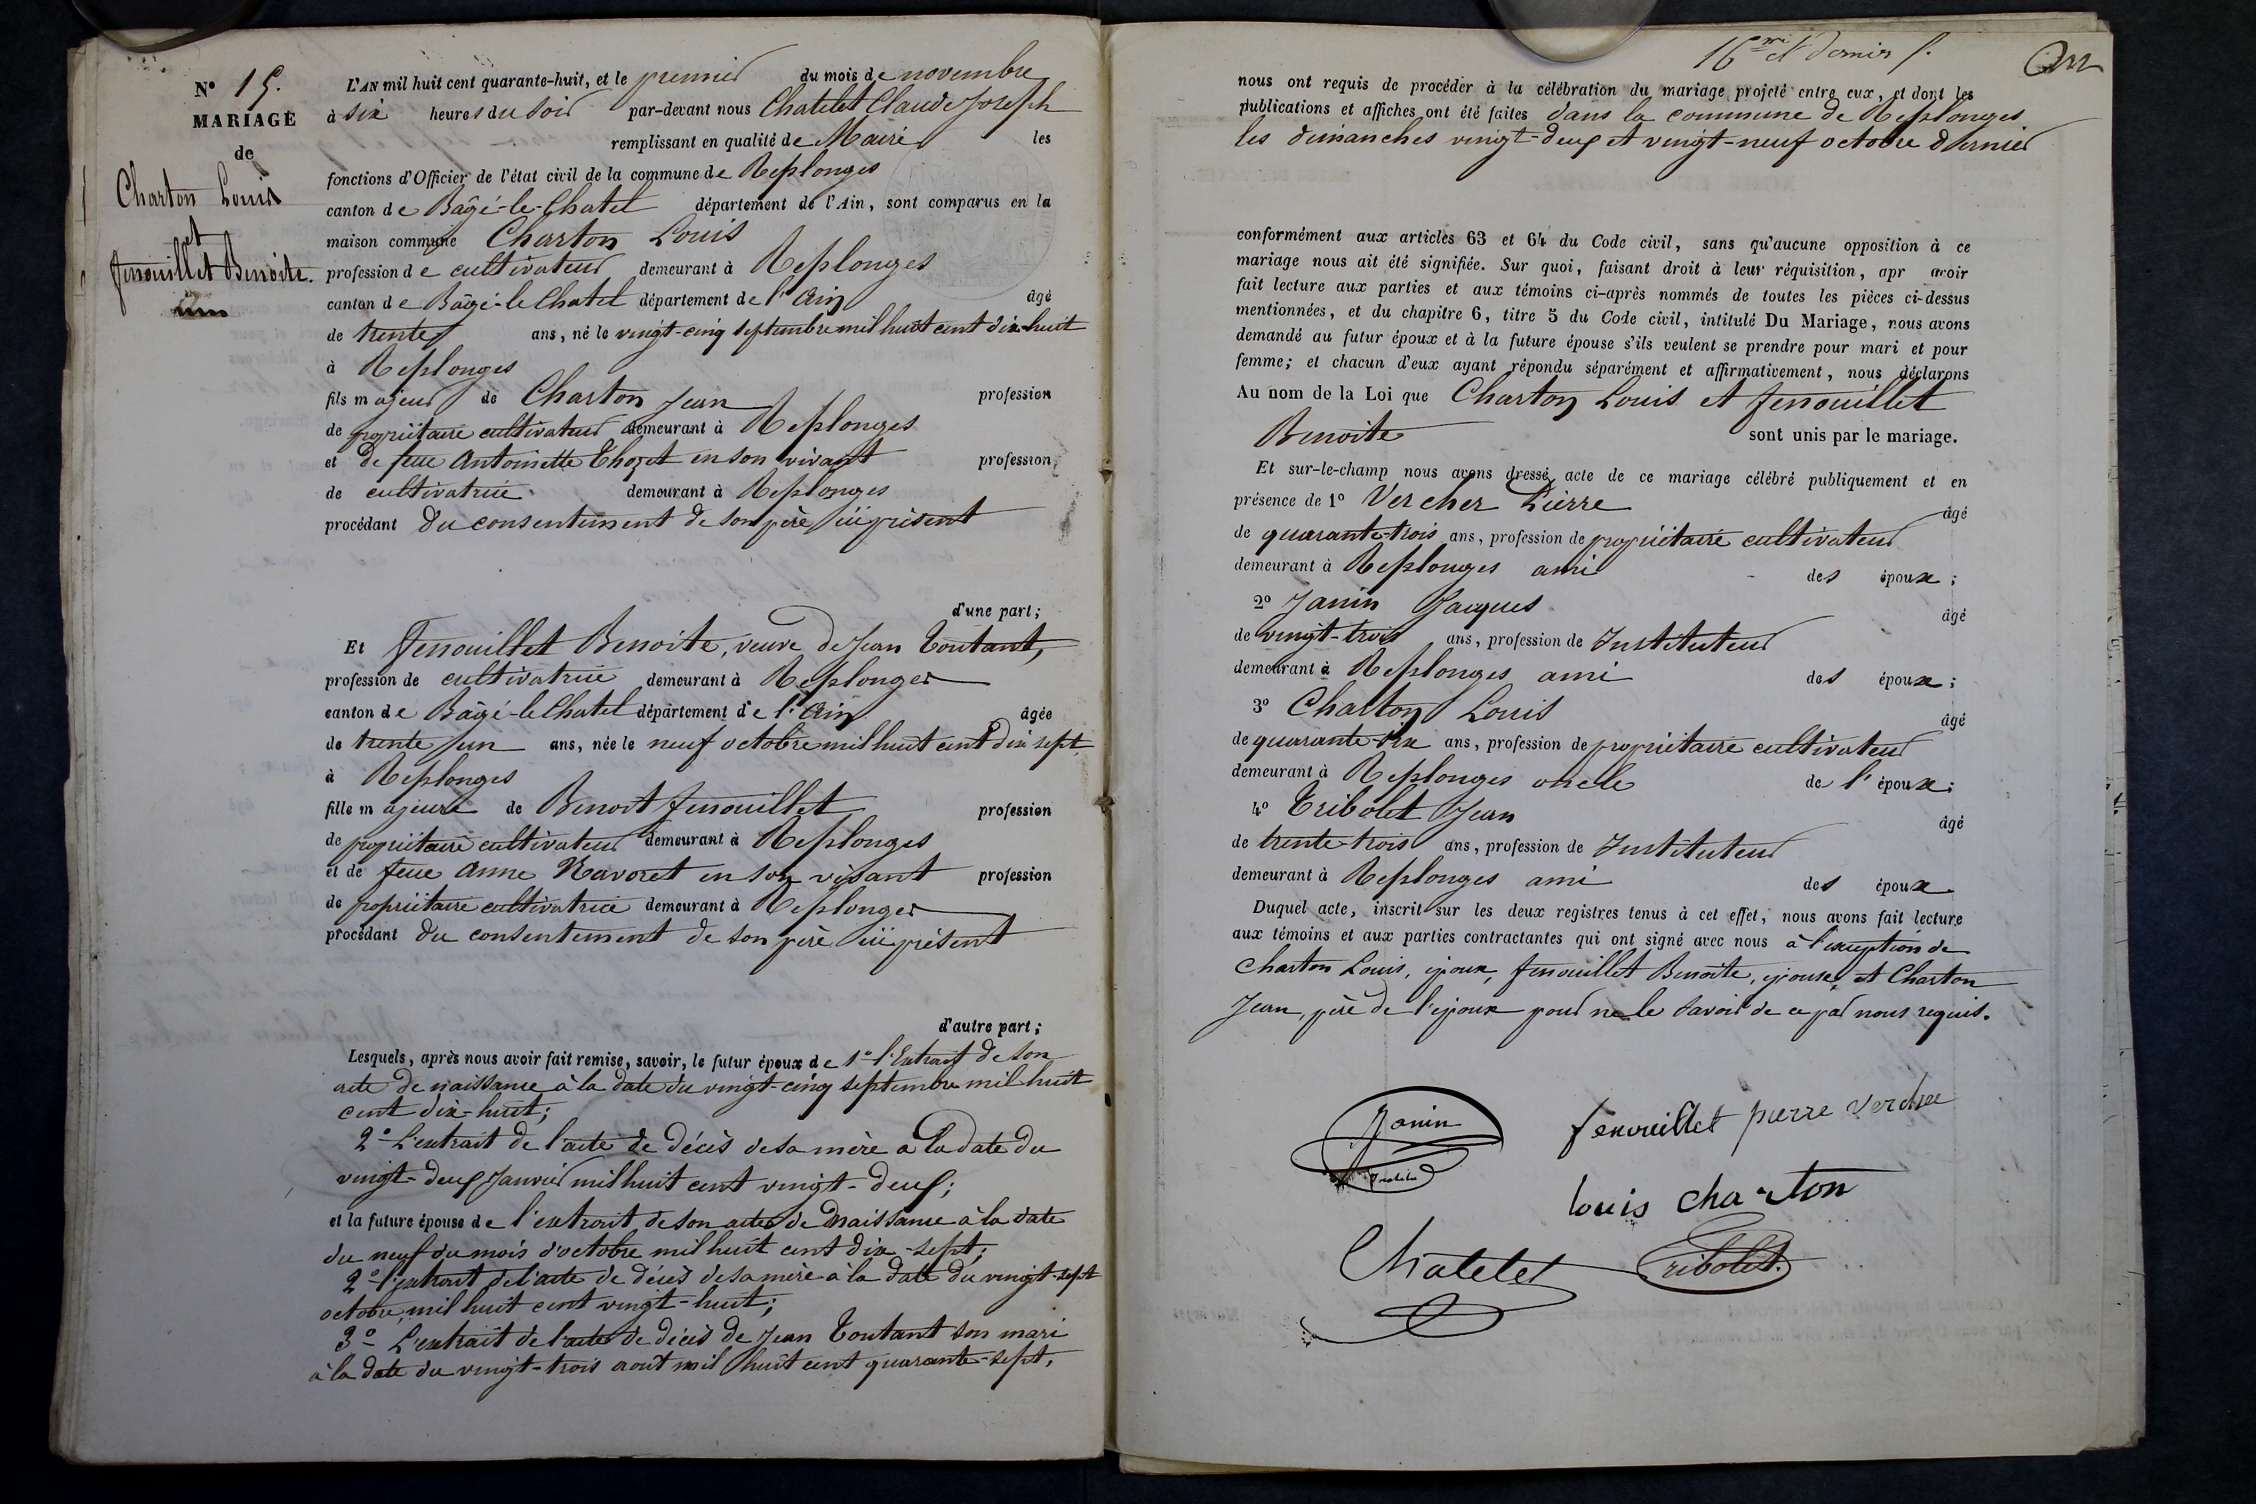 N° 15.
MARIAGE
de
Charton Louis
et
fenouillet Benoite.
L'AN mil huit cent quarante-huit, et le premier du mois de novembre
à six heures du soir par-devant nous Chatelet Claude Joseph
remplissant en qualité de Maire les
fonctions d'Officier de l'état civil de la commune de Replonges
canton de Bâgé-le-Chatel département de l'Ain, sont comparus en la
maison commune Charton Louis
profession de cultivateur demeurant à Replonges
canton de Bâgé-le Chatel département de l'Ain âgé
de trente ans, né le vingt-cinq septembre mil huit cent dix-huit
à Replonges
fils majeur de Charton Jean profession
de propriétaire cultivateur demeurant à Replonges
et de feue Antoinette Thozet en son vivant profession
de cultivatrice demeurant à Replonges
procédant du consentement de son père ici présent
d'une part;
Et fenouillet Benoite, veuve de Jean Toutant,
profession de cultivatrice demeurant à Replonges
canton de Bâgé-le Chatel département de l'Ain âgée
de trente un ans, née le neuf octobre mil huit cent dix sept
à Replonges
fille majeure de Benoit fenouillet profession
de propriétaire cultivateur demeurant à Replonges
et de feue Anne Ravoret en son vivant profession
de propriétaire cultivatrice demeurant à Replonges
procédant du consentement de son père ici présent
d'autre part;
Lesquels, après nous avoir fait remise, savoir, le futur époux de 1° l'Extrait de son
acte de naissance à la date du vingt-cinq septembre mil huit
cent dix-huit;
2° L'extrait de l'acte de décès de sa mère à la date du
vingt-deux Janvier mil huit cent vingt-deux;
et la future épouse de l'extrait de son acte de naissance à la date
du neuf du mois d'octobre mil huit cent dix-sept;
2° l'extrait de l'acte de décès de sa mère à la date du vingt-sept
octobre mil huit cent vingt-huit;
3° L'extrait de l'acte de décès de Jean Toutant son mari
à la date du vingt-trois août mil huit cent quarante-sept,
16me et dernier f.
nous ont requis de procéder à la célébration du mariage projeté entre eux, et dont les
publications et affiches ont été faites dans la commune de Replonges
les dimanches vingt-deux et vingt-neuf octobre dernier
conformément aux articles 63 et 64 du Code civil, sans qu'aucune opposition à ce
mariage nous ait été signifiée. Sur quoi, faisant droit à leur réquisition, apr avoir
fait lecture aux parties et aux témoins ci-après nommés de toutes les pièces ci-dessus
mentionnées, et du chapitre 6, titre 5 du Code civil, intitulé Du Mariage, nous avons
demandé au futur époux et à la future épouse s'ils veulent se prendre pour mari et pour
femme; et chacun d'eux ayant répondu séparément et affirmativement, nous déclarons
Au nom de la Loi que Charton Louis et fenouillet
Benoite sont unis par le mariage.
Et sur-le-champ nous avons dressé acte de ce mariage célébré publiquement et en
présence de 1° Vercher Pierre âgé
de quarante-trois ans, profession de propriétaire cultivateur
demeurant à Replonges ami des époux;
2° Janin Jacques âgé
de vingt-trois ans, profession de Instituteur
demeurant à Replonges ami des époux;
3° Charton Louis âgé
de quarante-six ans, profession de propriétaire cultivateur
demeurant à Replonges oncle de l'époux;
4° Tribolet Jean âgé
de trente-trois ans, profession de Instituteur
demeurant à Replonges ami des époux
Duquel acte, inscrit sur les deux registres tenus à cet effet, nous avons fait lecture
aux témoins et aux parties contractantes qui ont signé avec nous à l'exception de
Charton Louis, époux, fenouillet Benoite, épouse, et Charton
Jean, père de l'époux pour ne le savoir de ce par nous requis.
Janin
fenouillet pierre vercher
louis charton
Chatelet
Tribolet